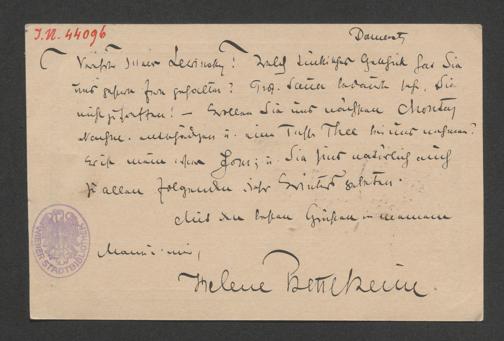 J.N. 44096
Donnerst
Verehrter Herr Lewinsky! Welch Geschick hat Sie
uns gestern fern gehalten? Prof. Sauer bedauerte sehr, Sie
nicht zu treffen! — Wollen Sie uns nächsten Montag
Nachm. entschädigen u. eine Tasse Thee bei uns nehmen?
Es ist mein Jour; u. Sie sind natürlich auch
zu allen folgenden des Winters gebeten.
Mit den besten Grüßen von meinem
Mann u. mir,
Helene Bettelheim.
WIENER STADTBIBLIOTHEK